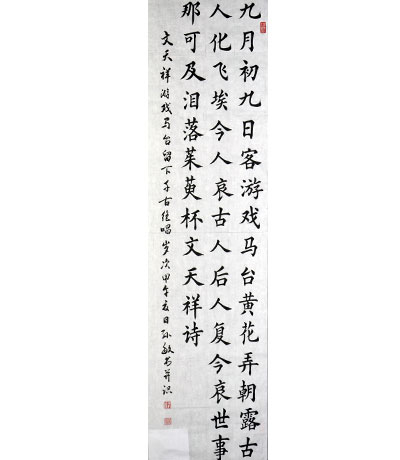 九月初九日客游戏马台黄花弄朝露古
人化飞埃今人哀古人后人复今哀世事
那可及泪落茱萸杯文天祥诗
文天祥游戏马台留下千古佳唱岁次甲午夏日孙敏书并识